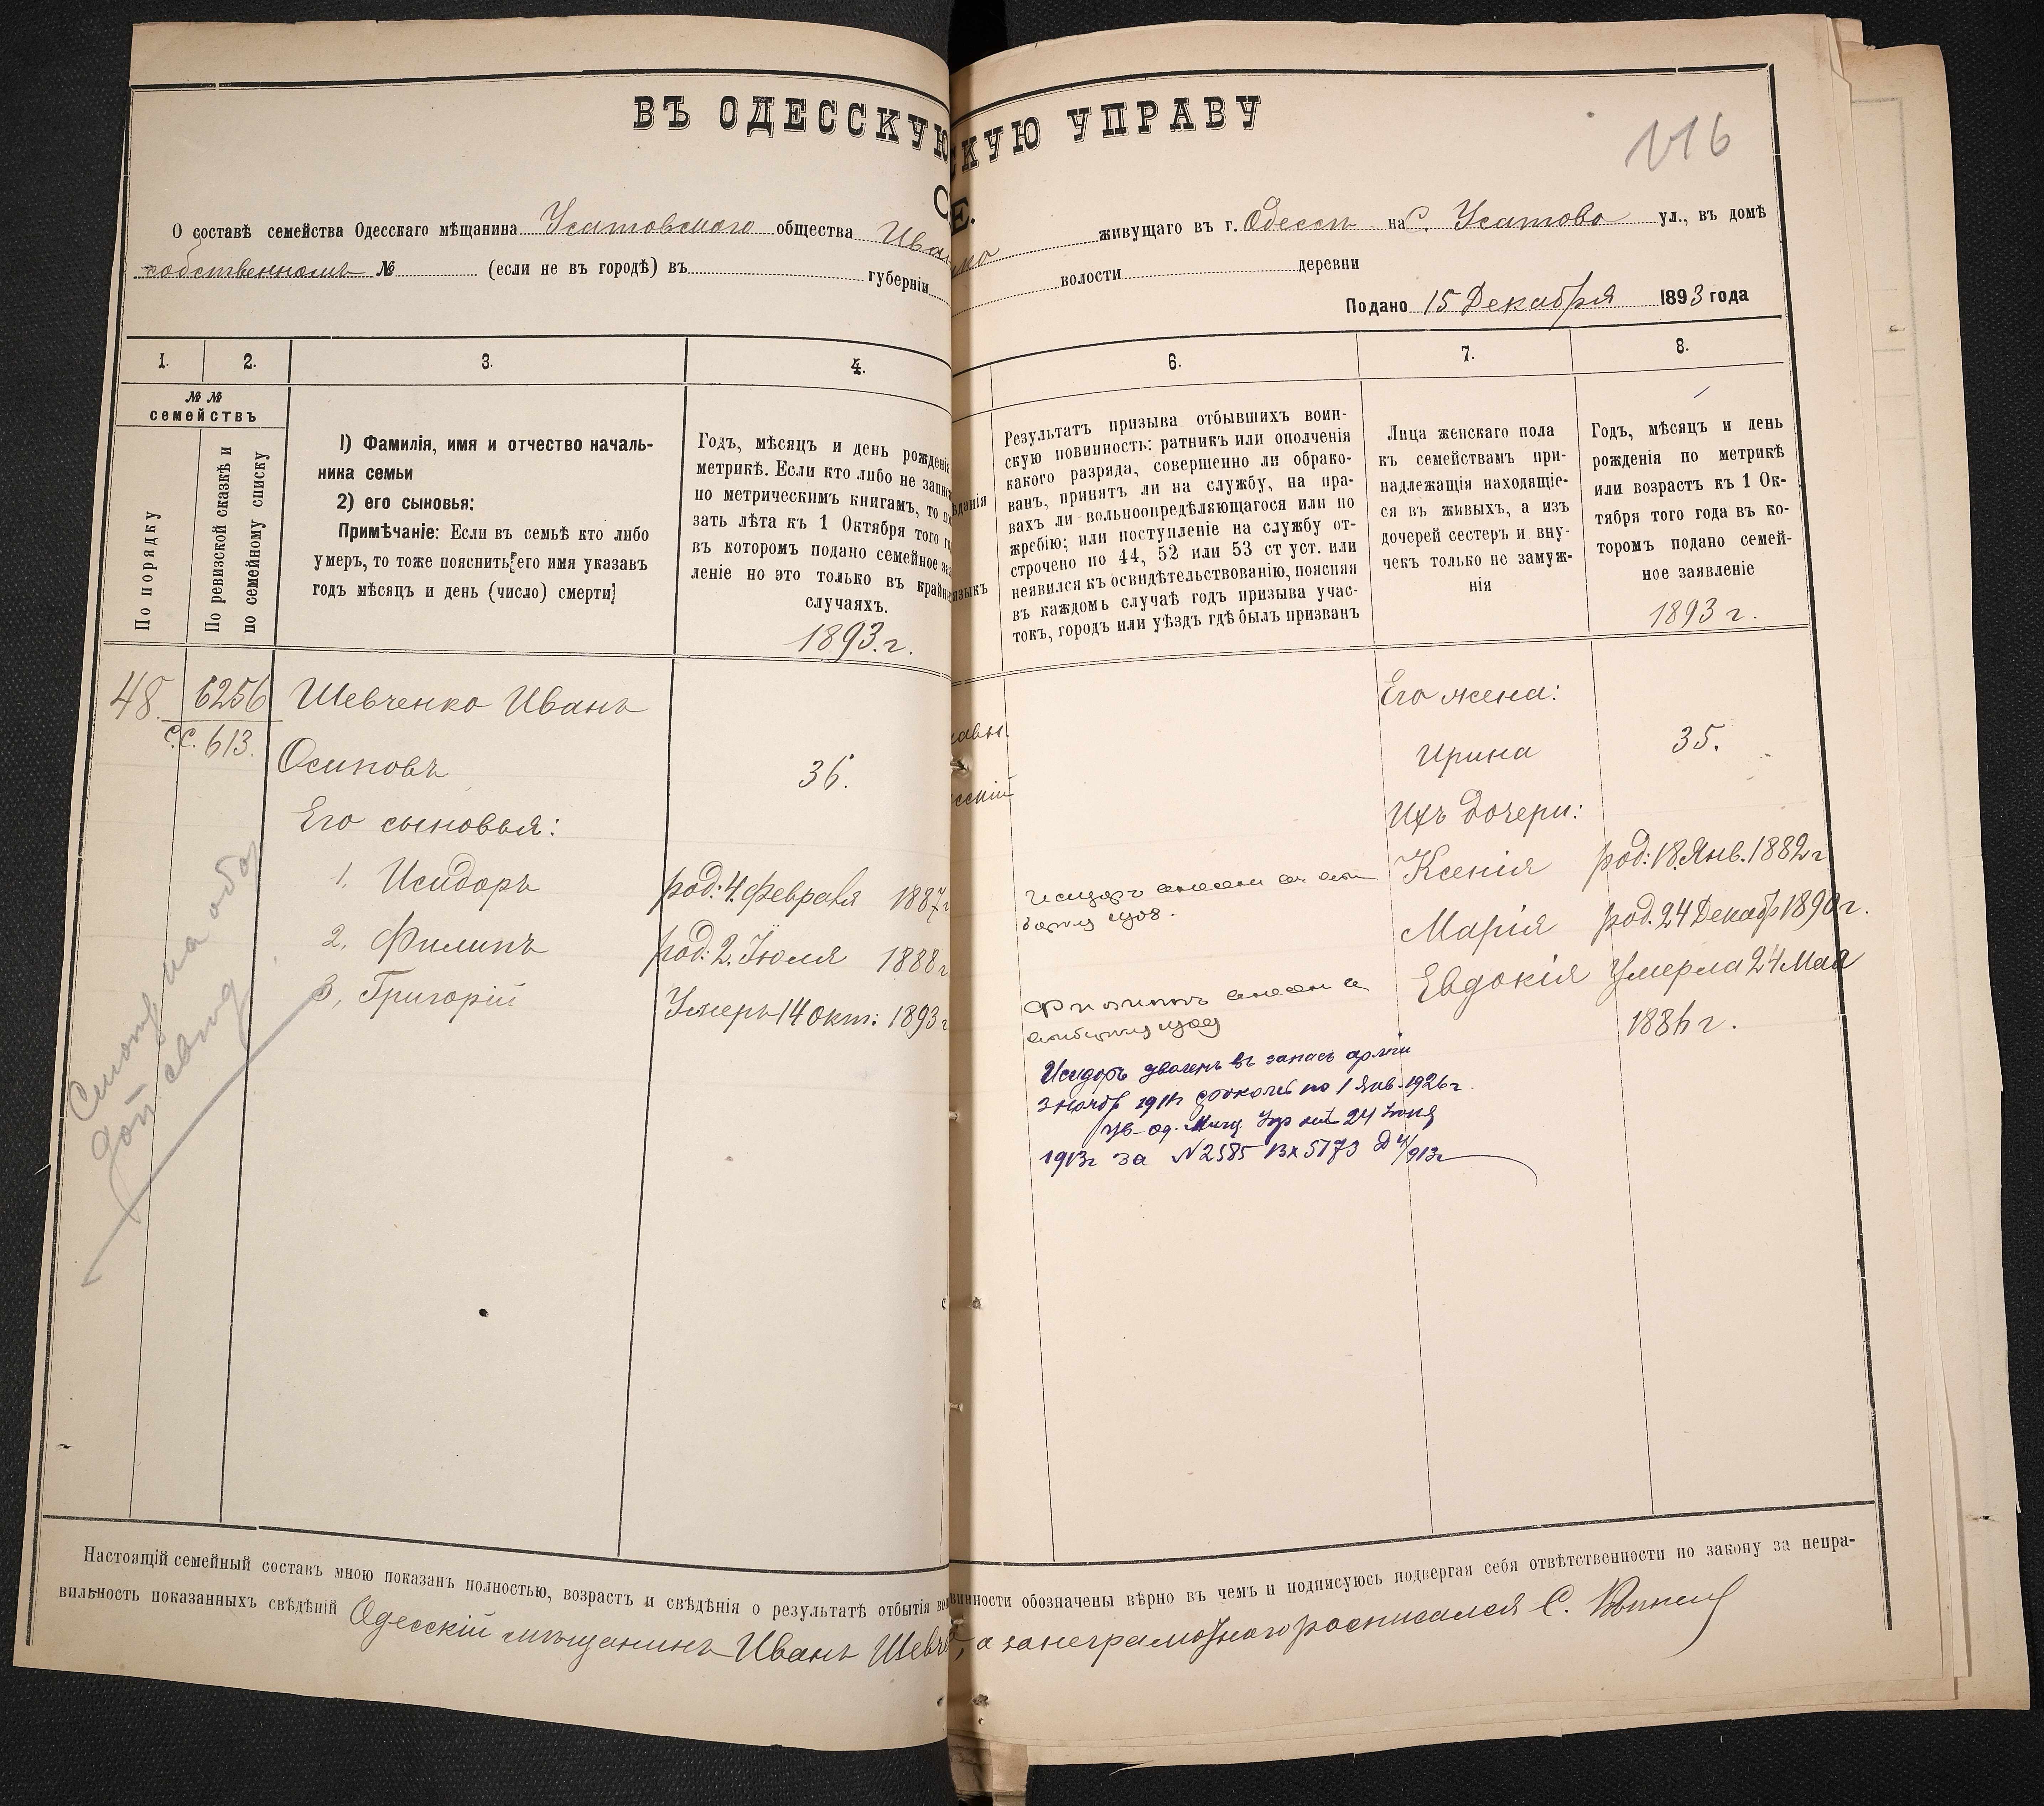 ВЪ ОДЕССКУЮ
СКУЮ УПРАВУ
116
Е.
О составѣ семейства Одесскаго мѣщанина Усатовского общества Ива
живущаго въ г. Одессѣ на с. Усатово ул., въ домѣ
собственномъ № (если не въ городѣ) въ губерніи
волости деревни
Подано 15 Декабря 1893 года
1. 2. 3. 4.
6. 7. 8.
№ №
семействъ
По порядку
По ревизской сказкѣ и
по семейному списку
1) Фамилія, имя и отчество началь-
ника семьи
2) его сыновья:
Примѣчаніе: Если въ семьѣ кто либо
умеръ, то тоже пояснить его имя указавъ
годъ мѣсяцъ и день (число) смерти
Годъ, мѣсяцъ и день рожденія
метрикѣ. Если кто либо не записа
по метрическимъ книгамъ, то по
зать лѣта къ 1 Октября того го
въ которомъ подано семейное зая
леніе но это только въ крайни
случаяхъ.
1893. г.
ѣданія
языкъ
Результатъ призыва отбывшихъ воин-
скую повинность: ратникъ или ополченія
какого разряда, совершенно ли обрако-
ванъ, принятъ ли на службу, на пра-
вахъ ли вольноопредѣляющагося или по
жребію; или поступленіе на службу от-
строчено по 44, 52 или 53 ст уст. или
неявился къ освидѣтельствованію, поясняя
въ каждомъ случаѣ годъ призыва учас-
токъ, городъ или уѣздъ гдѣ былъ призванъ
Лица женскаго пола
къ семействамъ при-
надлежащія находящіе-
ся въ живыхъ, а изъ
дочерей сестеръ и вну-
чекъ только не замуж-
нія
Годъ, мѣсяцъ и день
рожденія по метрикѣ
или возрастъ къ 1 Ок-
тября того года въ ко-
торомъ подано семей-
ное заявленіе
1893 г.
48. 6256 Шевченко Иванъ
с.с. 613.
Осиповъ 36.
Его сыновья:
1. Исидоръ род: 4. февраля 1887 г
2. Филипъ род: 2. Іюля 1888 г
3. Григорій Умеръ 14 окт: 1893 г
Смотр на обо
авы.
сскій
Его жена:
Ирина 35.
Ихъ дочери:
Ксенія род: 18. Янв. 1882 г
Марія род. 24 Декабр 1890 г.
Евдокія Умерла 24 Мая
1886 г.
Исидоръ
Филиппъ
Исидоръ уволенъ въ запасъ арміи
по 1 Янв. 1926 г.
24 Іюня
1913 г за № 2585 Вх 5173
Настоящій семейный составъ мною показанъ полностью, возрастъ и свѣдѣнія о результатѣ отбытія во
винности обозначены вѣрно въ чемъ и подписуюсь подвергая себя отвѣтственности по закону за непра-
вильность показанныхъ свѣдѣній Одесскій мѣщанинъ Иванъ Шевче
, а за неграмотнаго росписался С.